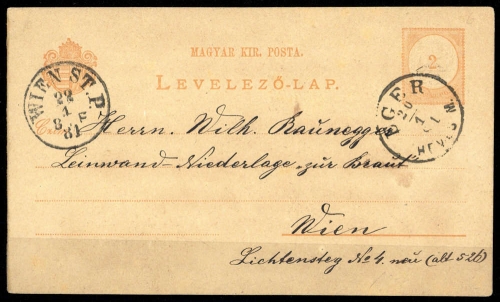 MAGYAR KIR. POSTA.
LEVELEZŐ-LAP.
2
WIEN ST. P.
22
1
8 F
81
EGER
HEVES M
Herrn. Wilh. Raunegger
Leinwand-Niederlage „zur Braut"
Wien
Lichtensteg No 4. neu (alt 526)